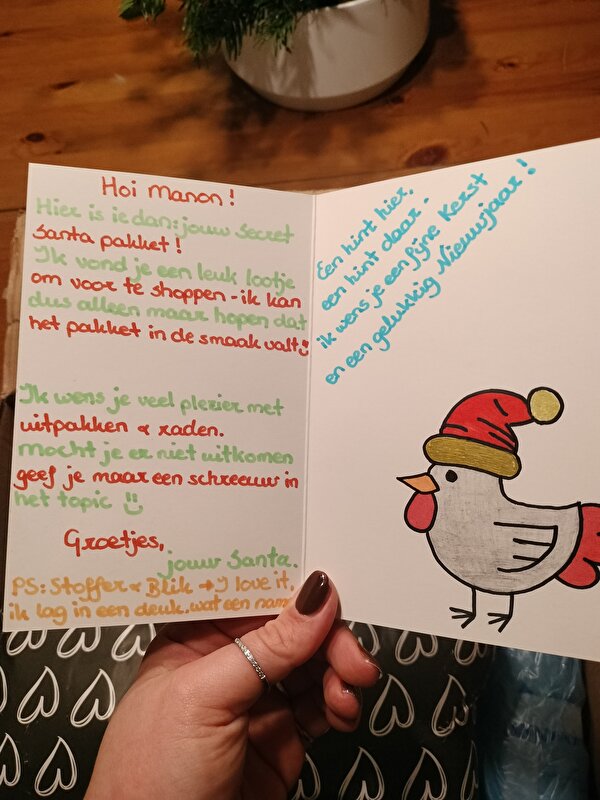 Hoi Manon!
Hier is ie dan: jouw Secret
Santa pakket!
Ik vond je een leuk lootje
om voor te shoppen - ik kan
dus alleen maar hopen dat
het pakket in de smaak valt
Ik wens je veel plezier met
uitpakken & raden.
mocht je er niet uitkomen
geef je maar een schreeuw in
het topic
Groetjes,
jouw Santa.
PS: Stoffer & Blik → I love it,
ik lag in een deuk. wat een namen
Een hint hier,
een hint daar -
ik wens je een fijne Kerst
en een gelukkig Nieuwjaar!